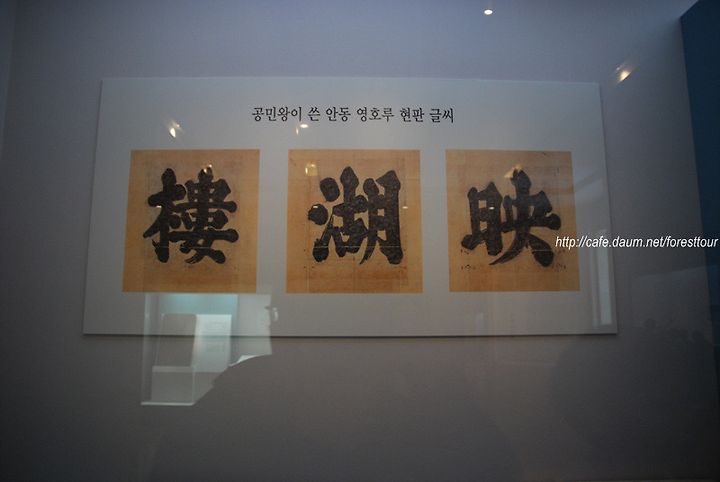 공민왕이 쓴 안동 영호루 현판 글씨
樓湖映
http://cafe.daum.net/foresttour